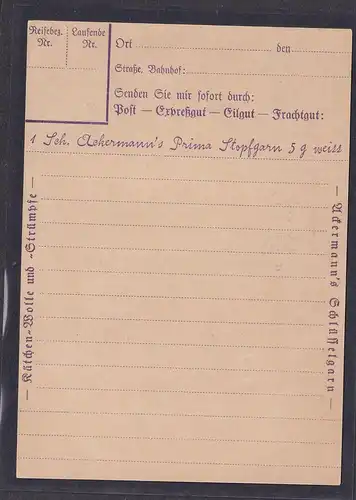 Reisebez. Nr.
Laufende Nr.
Ort
den
Straße, Bahnhof:
Senden Sie mir sofort durch:
Post — Expreßgut — Eilgut — Frachtgut:
1 Sch. Ackermann's Prima Stopfgarn 5 g weiss
— Kätchen-Wolle und -Strümpfe —
— Ackermann's Schlüsselgarn —